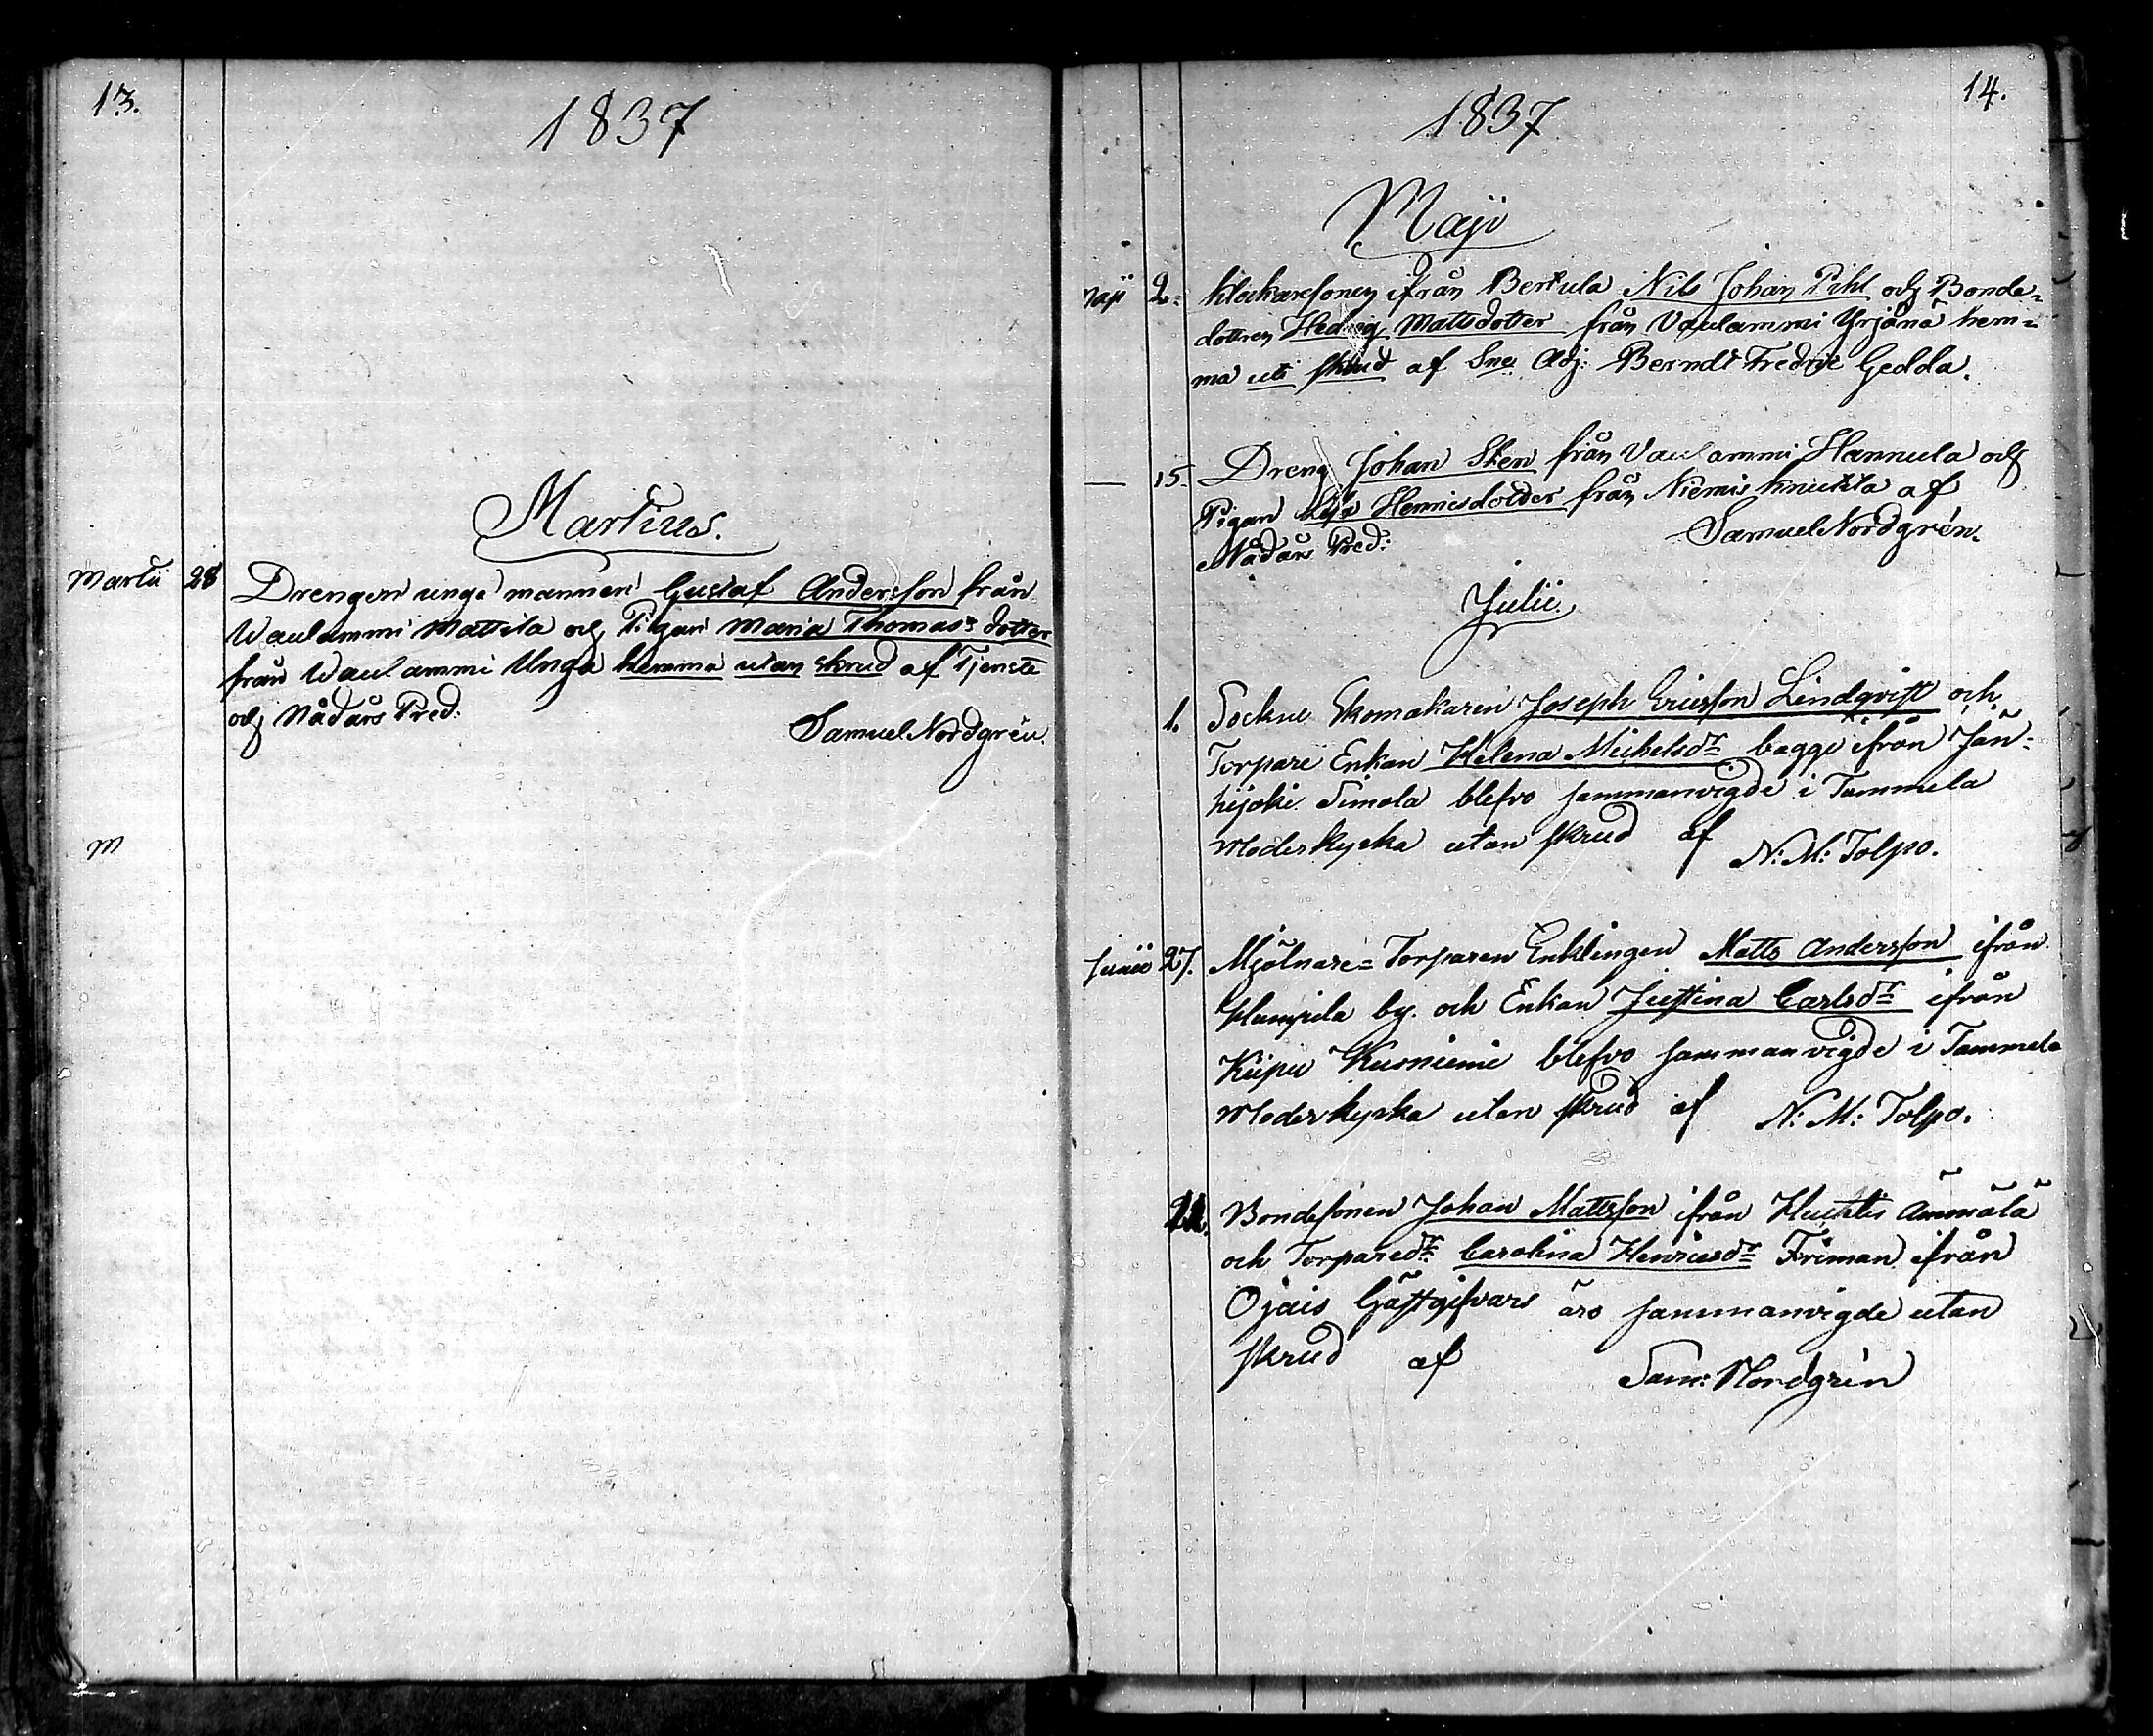 13.
1837
Martius.
Martii 28 Drengen unge mannen Gustaf Andersson från
Waulammi Mattila och Pigan Maria Thomas dotter
från Waulammi Unga hemma utan skrud af Tjenste
och Nådårs Pred:
Samuel Nordgrén.
M
14.
1837
Maji
Maji 2. Klockaresonen ifrån Bertula Nils Johan Pihl och Bonde-
dottren Hedvig Mattsdotter från Vaulammi Yrjänä hem=
ma uti skrud af Sne Adj: Berndt Fredric Gedda.
— 15. Dreng Johan Sten från Vaulammi Hannula och
Pigan Lisa Henricsdotter från Niemis Knuttila af
Nådårs Pred: Samuel Nordgrén.
Julii.
1. Sockne Skomakaren Joseph Ericsson Lindqvist och
Torpare Enkan Helena Michelsdr bagge ifrån Jän=
hijoki Simola blefvo sammanvigde i Tammela
Moderkyrka utan skrud af N: M: Tolpo.
Junii 27. Mjölnare= Torparen Enklingen Matts Andersson ifrån
Humpila by. och Enkan Justina Carlsdr ifrån
Kiipu Kusniemi blefvo sammanvigde i Tammela
Moderkyrka utan skrud af N: M: Tolpo.
Bondesonen Johan Mattsson ifrån Huhtis Ämmälä
och Torparedr Carolina Henricsdr Friman ifrån
Ojais Gästgifvars äro sammanvigde utan
skrud af Sam: Nordgrén